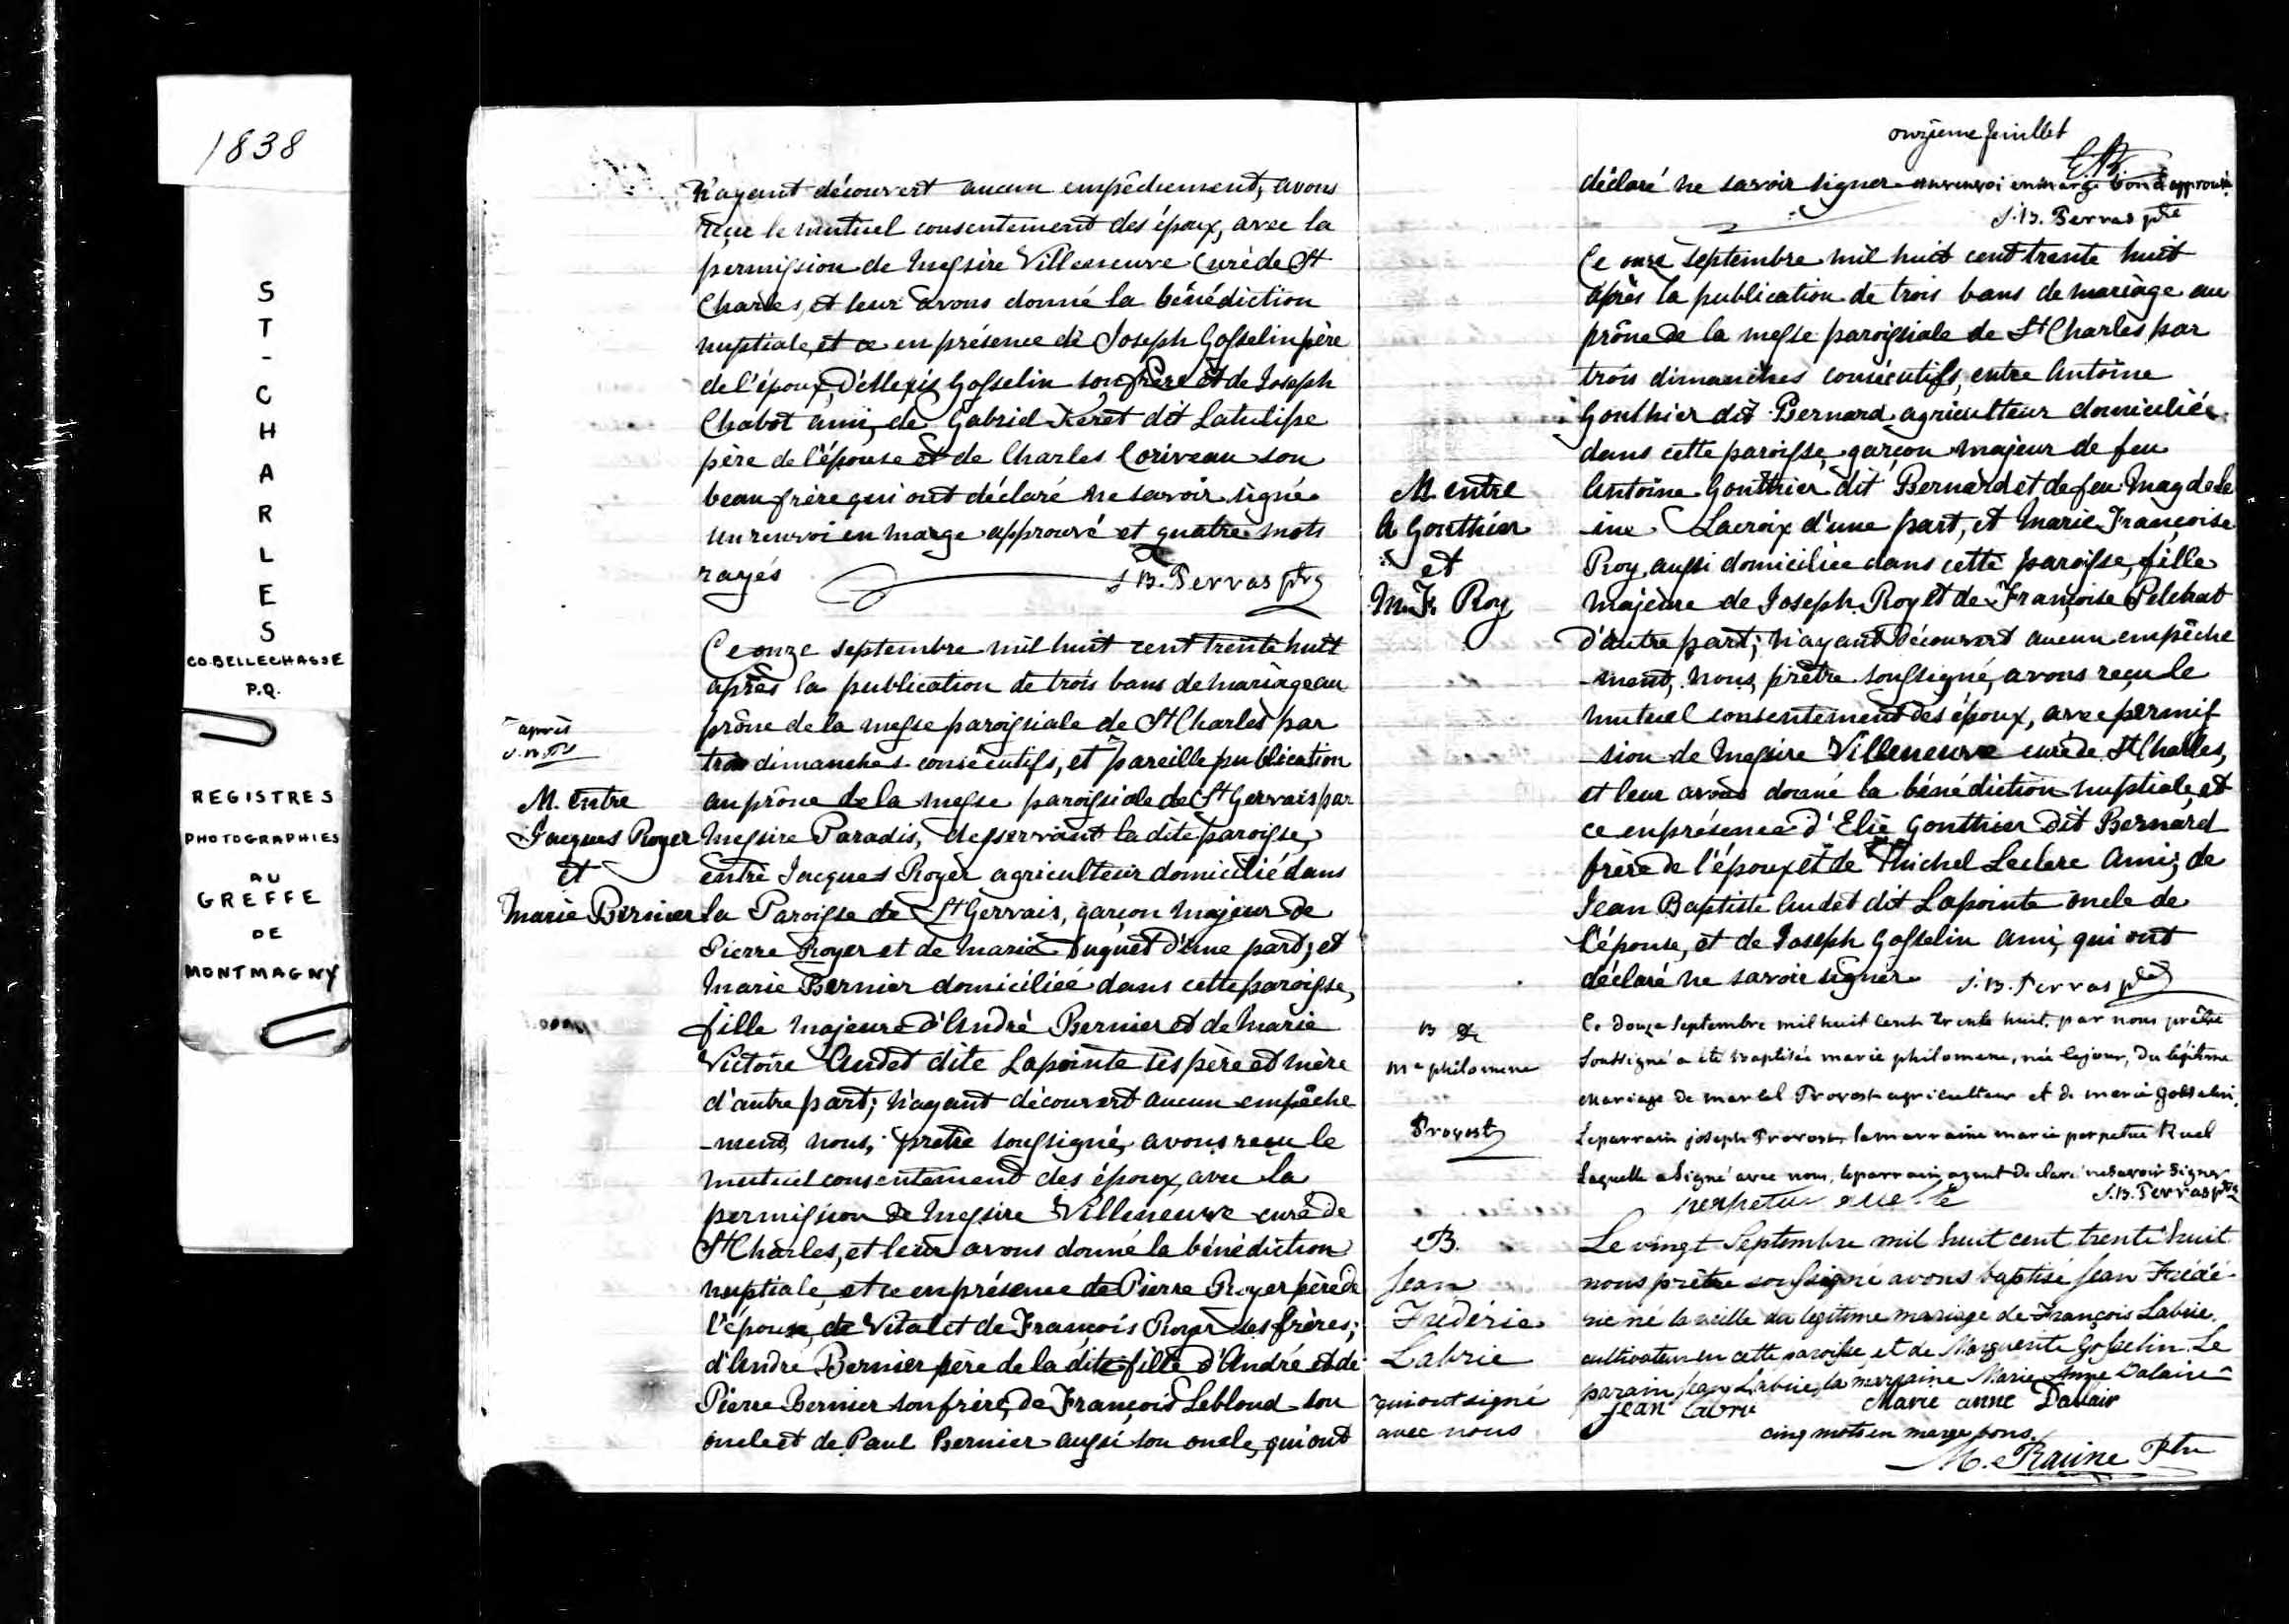 1838
ST-CHARLES
CO. BELLECHASSE
P.Q.
REGISTRES
PHOTOGRAPHIES
AU
GREFFE
DE
MONTMAGNY
n'ayant découvert aucun empêchement, avons
reçu le mutuel consentement des époux, avec la
permission de Messire Villeneuve Curé de St
Charles, et leur avons donné la bénédiction
nuptiale, et ce en présence de Joseph Gosselin père
de l'époux, d'Allexis Gosselin son frère et de Joseph
Chabot ami, de Gabriel Feret dit Latulipe
père de l'épouse et de Charles Coriveau son
beaufrère qui ont déclaré ne savoir signé
un renvoi en marge approuvé et quatre mots
rayés J.B. Perras ptre
Ce onze septembre mil huit cent trente huit
après la publication de trois bans de mariage au
prône de la messe paroissiale de St Charles par
trois dimanches consécutifs, et pareille publication
au prône de la messe paroissiale de St Gervais par
Messire Paradis, desservant la dite paroisse,
entre Jacques Royer agriculteur domicilié dans
la Paroisse de St Gervais, garçon majeur de
Pierre Royer et de Marie Duquet d'une part; et
Marie Bernier domiciliée dans cette paroisse,
fille majeure d'André Bernier et de Marie
Victoire Audet dite Lapointe ses père et mère
d'autre part; n'ayant découvert aucun empêche
-ment, nous, prêtre soussigné, avons reçu le
mutuel consentement des époux, avec la
permission de Messire Villeneuve curé de
St Charles, et leur avons donné la bénédiction
nuptiale, et ce en présence de Pierre Royer père de
l'époux, de Vital et de François Royer ses frères;
d'André Bernier père de la dite fille d'André et de
Pierre Bernier son frère, de François Leblond son
oncle et de Paul Bernier aussi son oncle, qui ont
après
J.B.P.
M. entre
Jacques Royer
et
Marie Bernier
onzieme feuillet
déclaré ne savoir signer un renvoi en marge bon & approuvé
J.B. Perras ptre
Ce onze septembre mil huit cent trente huit
après la publication de trois bans de mariage au
prône de la messe paroissiale de St Charles par
trois dimanches consécutifs, entre Antoine
Gonthier dit Bernard agriculteur domiciliée
dans cette paroisse, garçon majeur de feu
Antoine Gonthier dit Bernard et de feu Magdele
-ine Lacroix d'une part, et Marie Françoise
Roy, aussi domiciliée dans cette paroisse, fille
majeure de Joseph Roy et de Françoise Pelchat
d'autre part; n'ayant découvert aucun empêche
-ment, nous, prêtre soussigné, avons reçu le
mutuel consentement des époux, avec permis
-sion de Messire Villeneuve curé de St Charles,
et leur avons donné la bénédiction nuptiale, et
ce en présence d'Elie Gonthier dit Bernard
frère de l'époux et de Michel Leclerc ami; de
Jean Baptiste Audet dit Lapointe oncle de
l'épouse, et de Joseph Gosselin ami, qui ont
déclaré ne savoir signer J.B. Perras ptre
M entre
A Gonthier
et
M. F. Roy
Ce douze septembre mil huit cent trente huit, par nous prêtre
soussigné a été baptisée marie philomene, née le jour, du légitime
mariage de marcel Provost agriculteur et de marie gosselin,
Le parrain joseph Provost, la marraine marie perpetue Ruel
Laquelle a signé avec nous, le parrain ayant déclaré ne savoir signer
J.B. Perras ptre
B de
Me philomene
Provost
Le vingt Septembre mil huit cent trente huit
nous prêtre soussigné avons baptisé Jean Frédé
ric né la veille du legitime mariage de François Labrie
cultivateur en cette paroisse et de Marguerite Gosselin. Le
parain Jean Labrie, la marraine Marie Anne Dalaire
Jean Labrie Marie anne Dallair
cinq mots en marge bons.
M. Racine Ptre
B.
Jean
Frédéric
Labrie
qui ont signé
avec nous